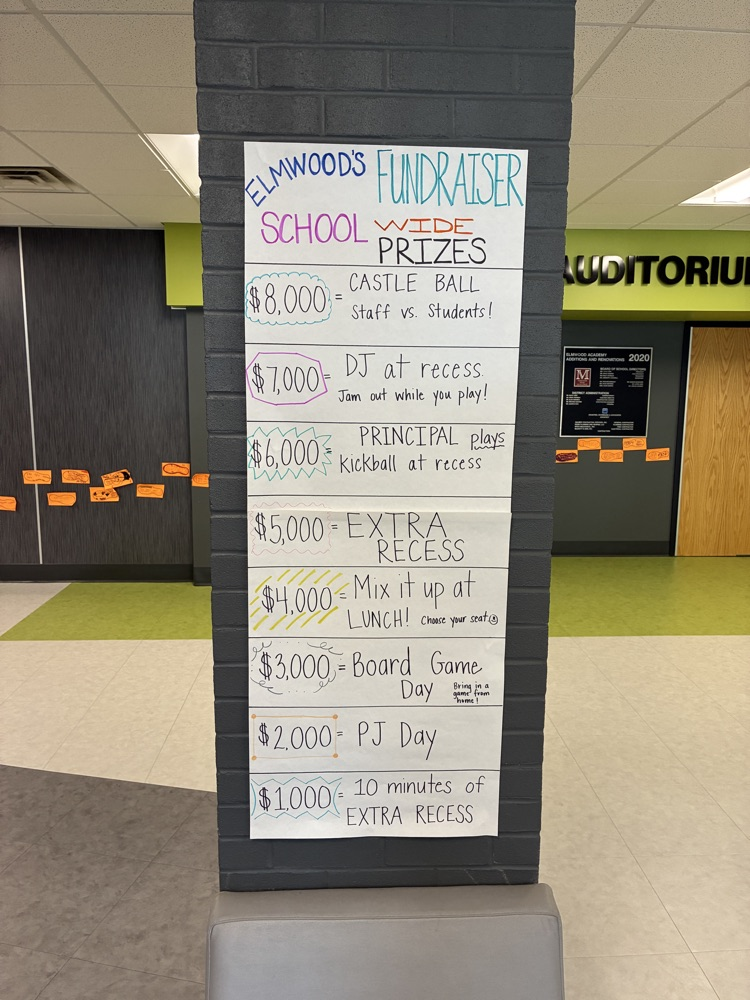 ELMWOOD'S FUNDRAISER
SCHOOL WIDE
PRIZES
$8,000 = CASTLE BALL
Staff vs. Students!
$7,000 = DJ at recess.
Jam out while you play!
$6,000 = PRINCIPAL plays
kickball at recess
$5,000 = EXTRA
RECESS
$4,000 = Mix it up at
LUNCH! Choose your seat
$3,000 = Board Game
Day Bring in a
game from
home!
$2,000 = PJ Day
$1,000 = 10 minutes of
EXTRA RECESS
AUDITORIU
ELMWOOD ACADEMY
ADDITIONS AND RENOVATIONS 2020
M
BOARD OF SCHOOL DIRECTORS
DISTRICT ADMINISTRATION